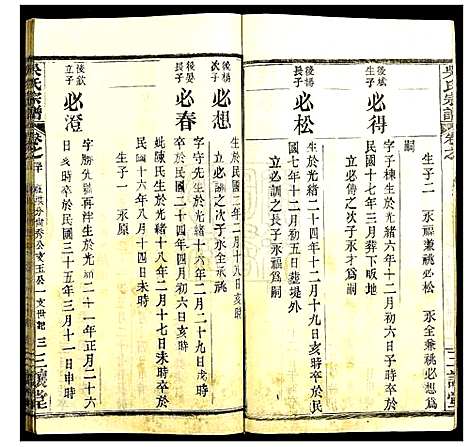 吳氏宗譜 卷之
生子二 永福兼祧必松 永全兼祧必想為
嗣
後斌生子 必得
字子棟生於光緒六年十二月初六日子時卒於
民國十七年三月葬下坂畈
立必傳之次子永才為嗣
後揚長子 必松
生於光緒二十四年十二月十九日亥時卒於民
國七年十二月初五日葬堤外
立必訓之長子永福為嗣
次子 必想
生於民國三年二月十八日亥時
立必訓次子永全為嗣
後晏長子 必春
字守先生於光緒十四年二月二十九日戌時
卒於民國二十四年四月初六日亥時
娶陳氏生於光緒十八年二月十七日未時卒於
民國十六年八月十四日未時
生子一 永原
後欽立子 必澄
字勝先號再泮生於光緒二十一年正月二十六
日亥時卒於民國三十五年三月十一日申時
吳氏宗譜 卷之
三讓堂